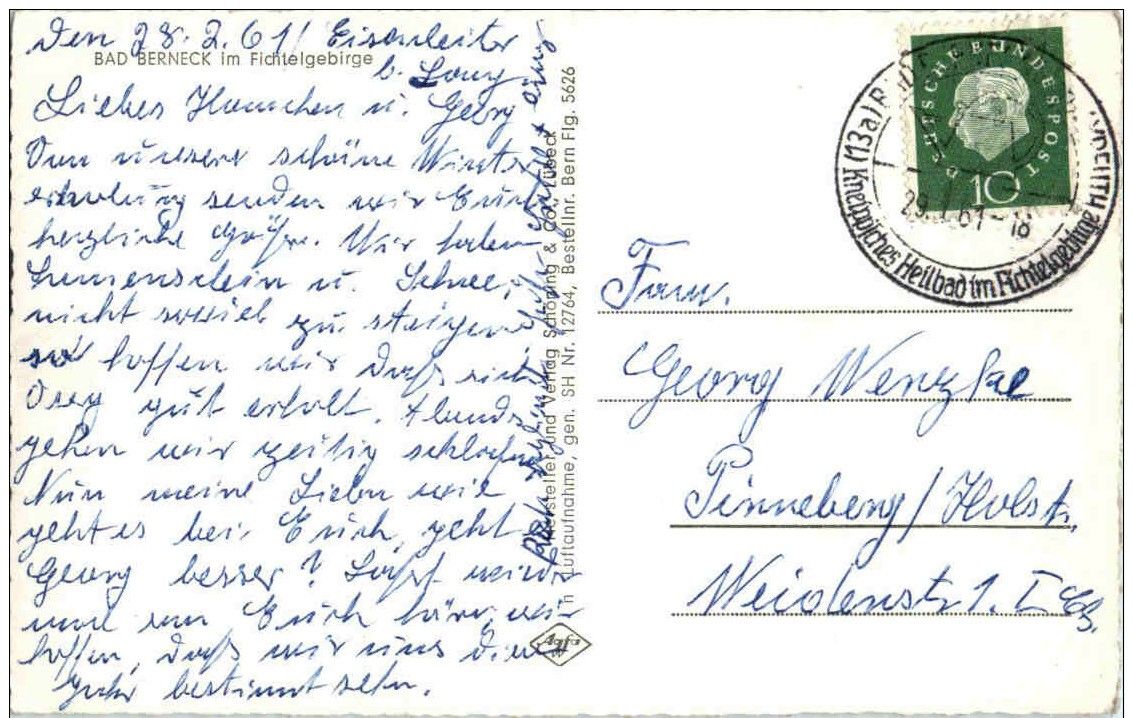 Den 28.2.61! Eisenleiter
BAD BERNECK im Fichtelgebirge
b.
Liebes Hannchen u. Georg
Von unsere schöne Winter
erholung senden wir Euch
herzliche Grüße. Wir haben
Sonnenschein u. Schnee,
nicht soviel zu steigen
so hoffen wir daß sich
gut erholt. Abends
gehen wir zeitig schlafen
Nun meine Lieben wie
geht es bei Euch, geht
Georg besser? Laßt wieder
mal von Euch hören, wir
hoffen, daß wir uns dieses
Jahr bestimmt sehn.
Hersteller und Verlag Schöning & Co., Lübeck
Luftaufnahme, gen. SH Nr. 12764, Bestellnr. Bern Flg. 5626
Agfa
DEUTSCHE BUNDESPOST
10
(13a)
29. 61-18
Kneippsches Heilbad im Fichtelgebirge
Fam.
Georg Wenzke
Pinneberg/Holst.
Weidenstr. 1. I Eg.